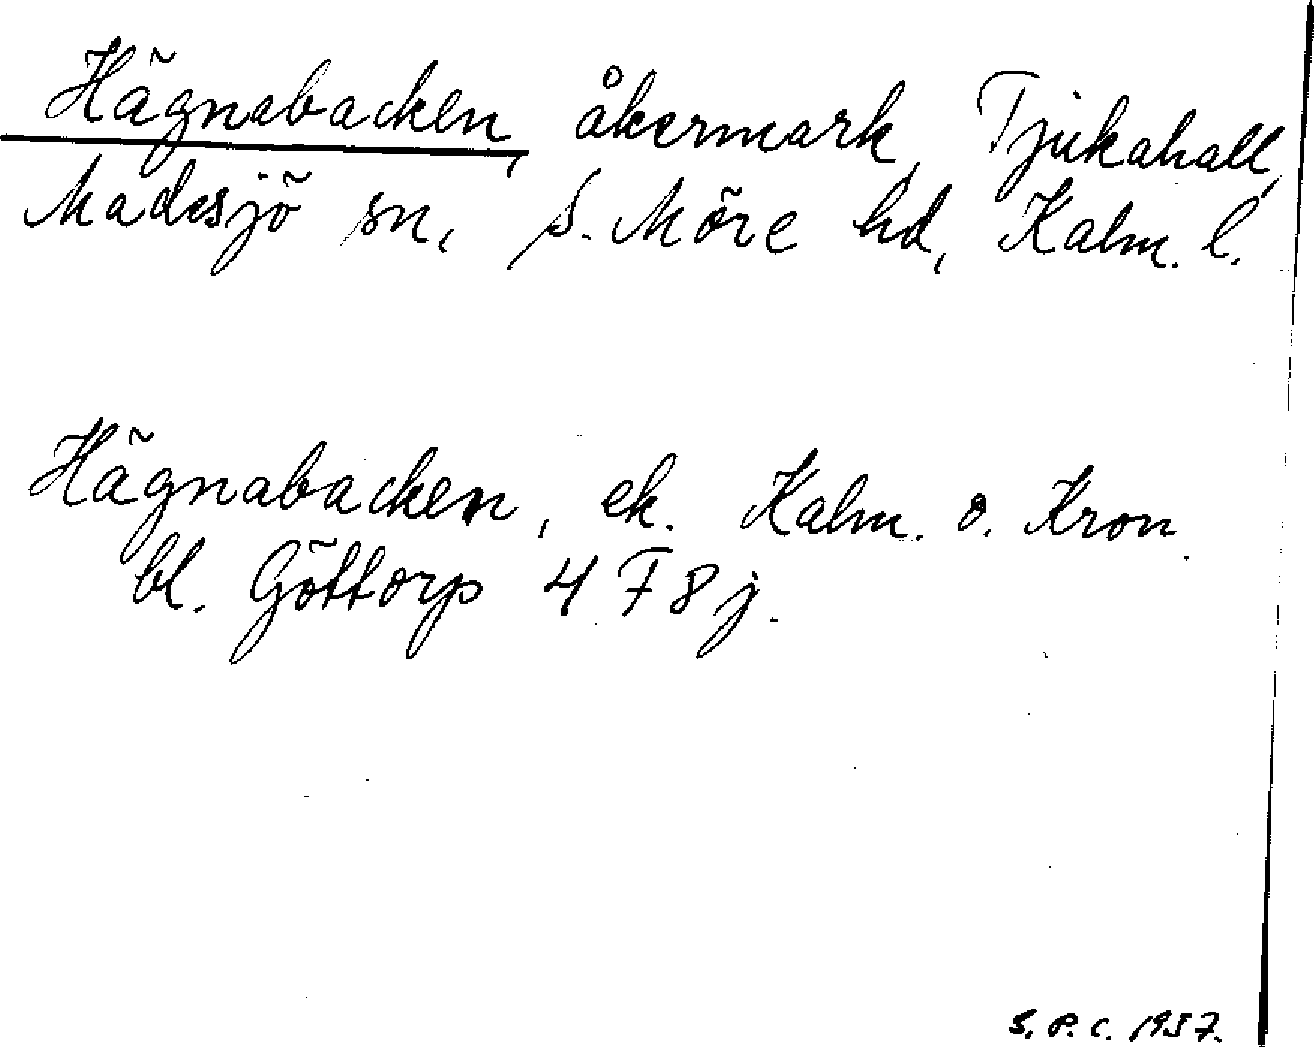 Hägnabacken, åkermark, Tjukahall,
Madesjö sn, S. Möre hd, Kalm. l.
Hägnabacken, ek. Kalm. o. Kron.
bl. Göttorp 4 F 8 j.
S. P. C. 1957.